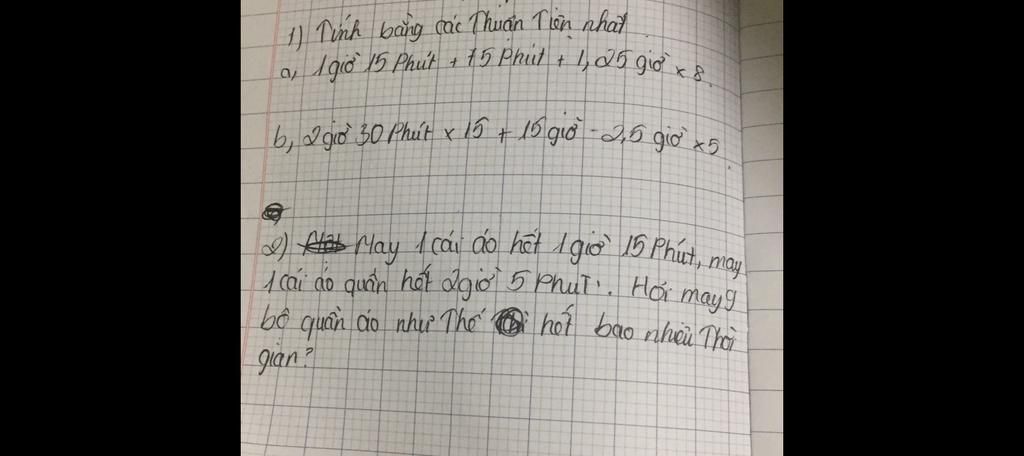 1) Tính bằng các Thuận Tiện nhất
a, 1giờ 15 Phút + 75 Phút + 1,25 giờ x 8.
b, 2giờ 30 Phút x 15 + 15 giờ - 2,5 giờ x 5.
2) May 1 cái áo hết 1giờ 15 Phút, may
1 cái áo quần hết 2giờ 5 Phút. Hỏi may 9
bộ quần áo như Thế hết bao nhiêu Thời
gian?